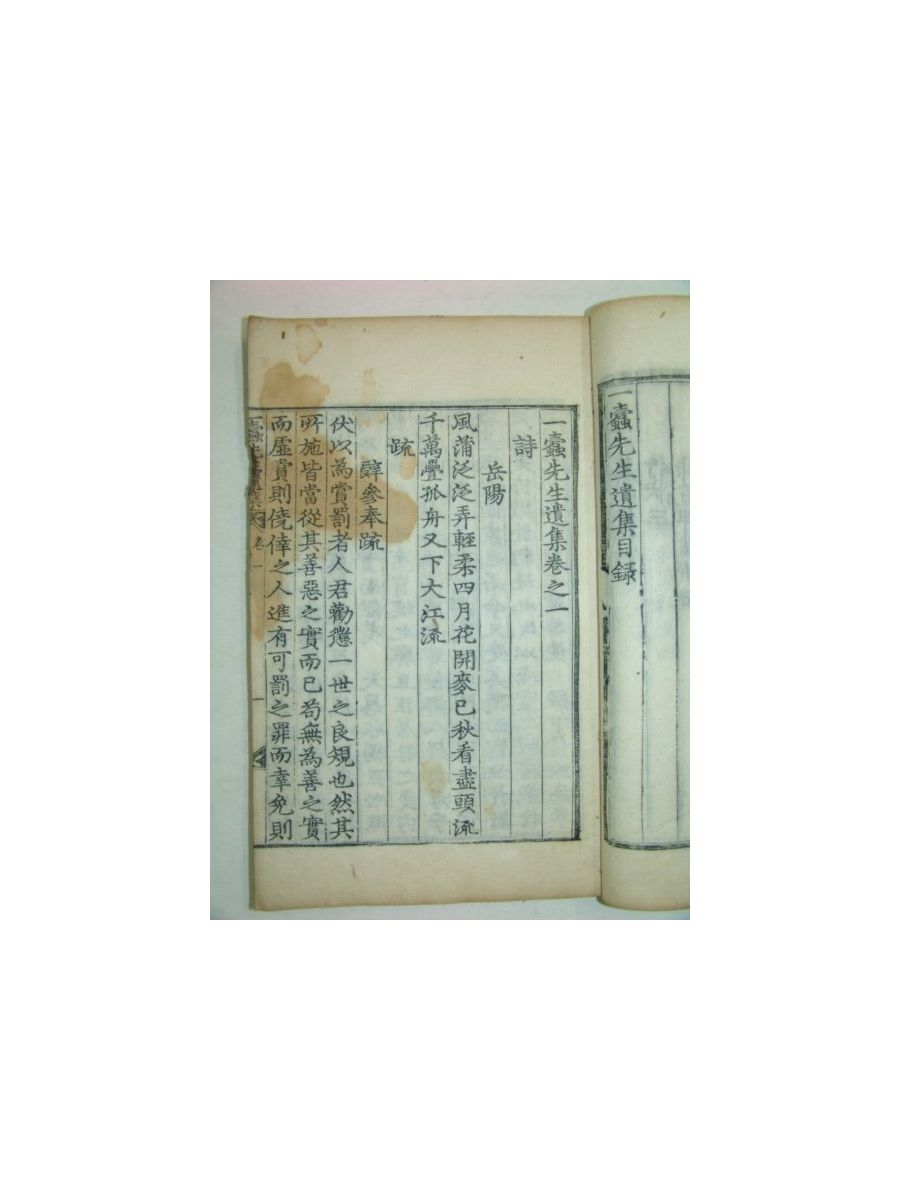 一蠹先生遺集目録
一蠹先生遺集卷之一
詩
岳陽
風蒲泛泛弄輕柔四月花開麥已秋看盡頭流
千萬疊孤舟又下大江流
疏
辭參奉疏
伏以為賞罰者人君勸懲一世之良規也然其
所施皆當從其善惡之實而已苟無為善之實
而虛賞則僥倖之人進有可罰之罪而幸免則
一蠹先生遺集 卷一 一